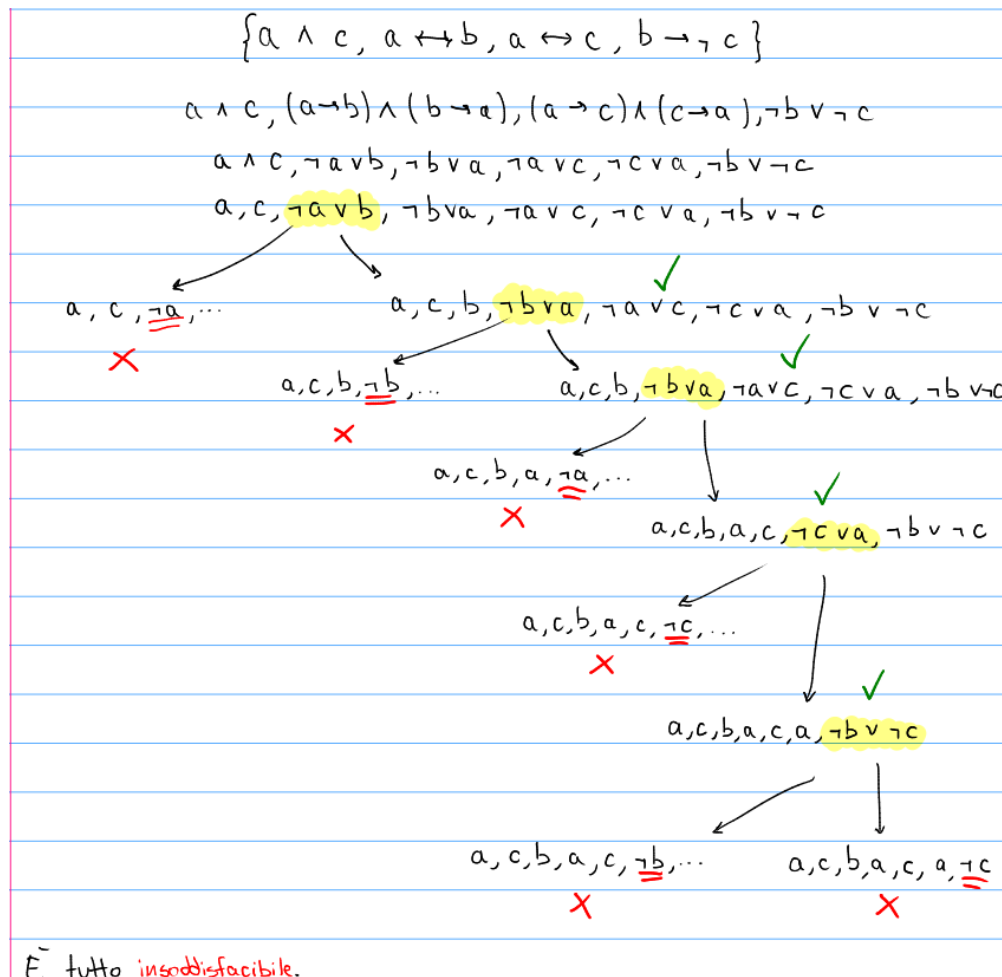 {a ∧ c, a ↔ b, a ↔ c, b → ¬c}
a ∧ c, (a→b) ∧ (b→a), (a→c) ∧ (c→a), ¬b ∨ ¬c
a ∧ c, ¬a ∨ b, ¬b ∨ a, ¬a ∨ c, ¬c ∨ a, ¬b ∨ ¬c
a, c, ¬a ∨ b, ¬b ∨ a, ¬a ∨ c, ¬c ∨ a, ¬b ∨ ¬c
a, c, ¬a, ...
a, c, b, ¬b ∨ a, ¬a ∨ c, ¬c ∨ a, ¬b ∨ ¬c
a, c, b, ¬b, ...
a, c, b, ¬b ∨ a, ¬a ∨ c, ¬c ∨ a, ¬b ∨ ¬c
a, c, b, a, ¬a, ...
a, c, b, a, c, ¬c ∨ a, ¬b ∨ ¬c
a, c, b, a, c, ¬c, ...
a, c, b, a, c, a, ¬b ∨ ¬c
a, c, b, a, c, ¬b, ...
a, c, b, a, c, a, ¬c
È tutto insoddisfacibile.